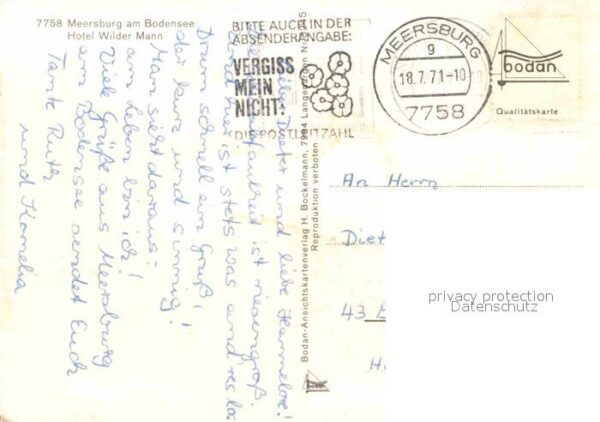 7758 Meersburg am Bodensee
Hotel Wilder Mann
BITTE AUCH IN DER
ABSENDERANGABE:
VERGISS
MEIN
NICHT:
DIE POSTLEITZAHL
MEERSBURG
9
18.7.71-10
7758
bodan
Qualitätskarte
Bodan-Ansichtskartenverlag H. Bockelmann, 7994 Langenargen
Reproduktion verboten
und liebe Hannelore!
Faulheit ist riesengroß.
ist stets was and'res los
Drum schnell ein Gruß,
der kurz und sinnig!
Man sieht daraus:
am Leben bin ich!
Viele Grüße aus Meersburg
am Bodensee sendet Euch
Tante Ruth
und Kornelia
An Herrn
Diet
43 E
H
privacy protection
Datenschutz
bodan